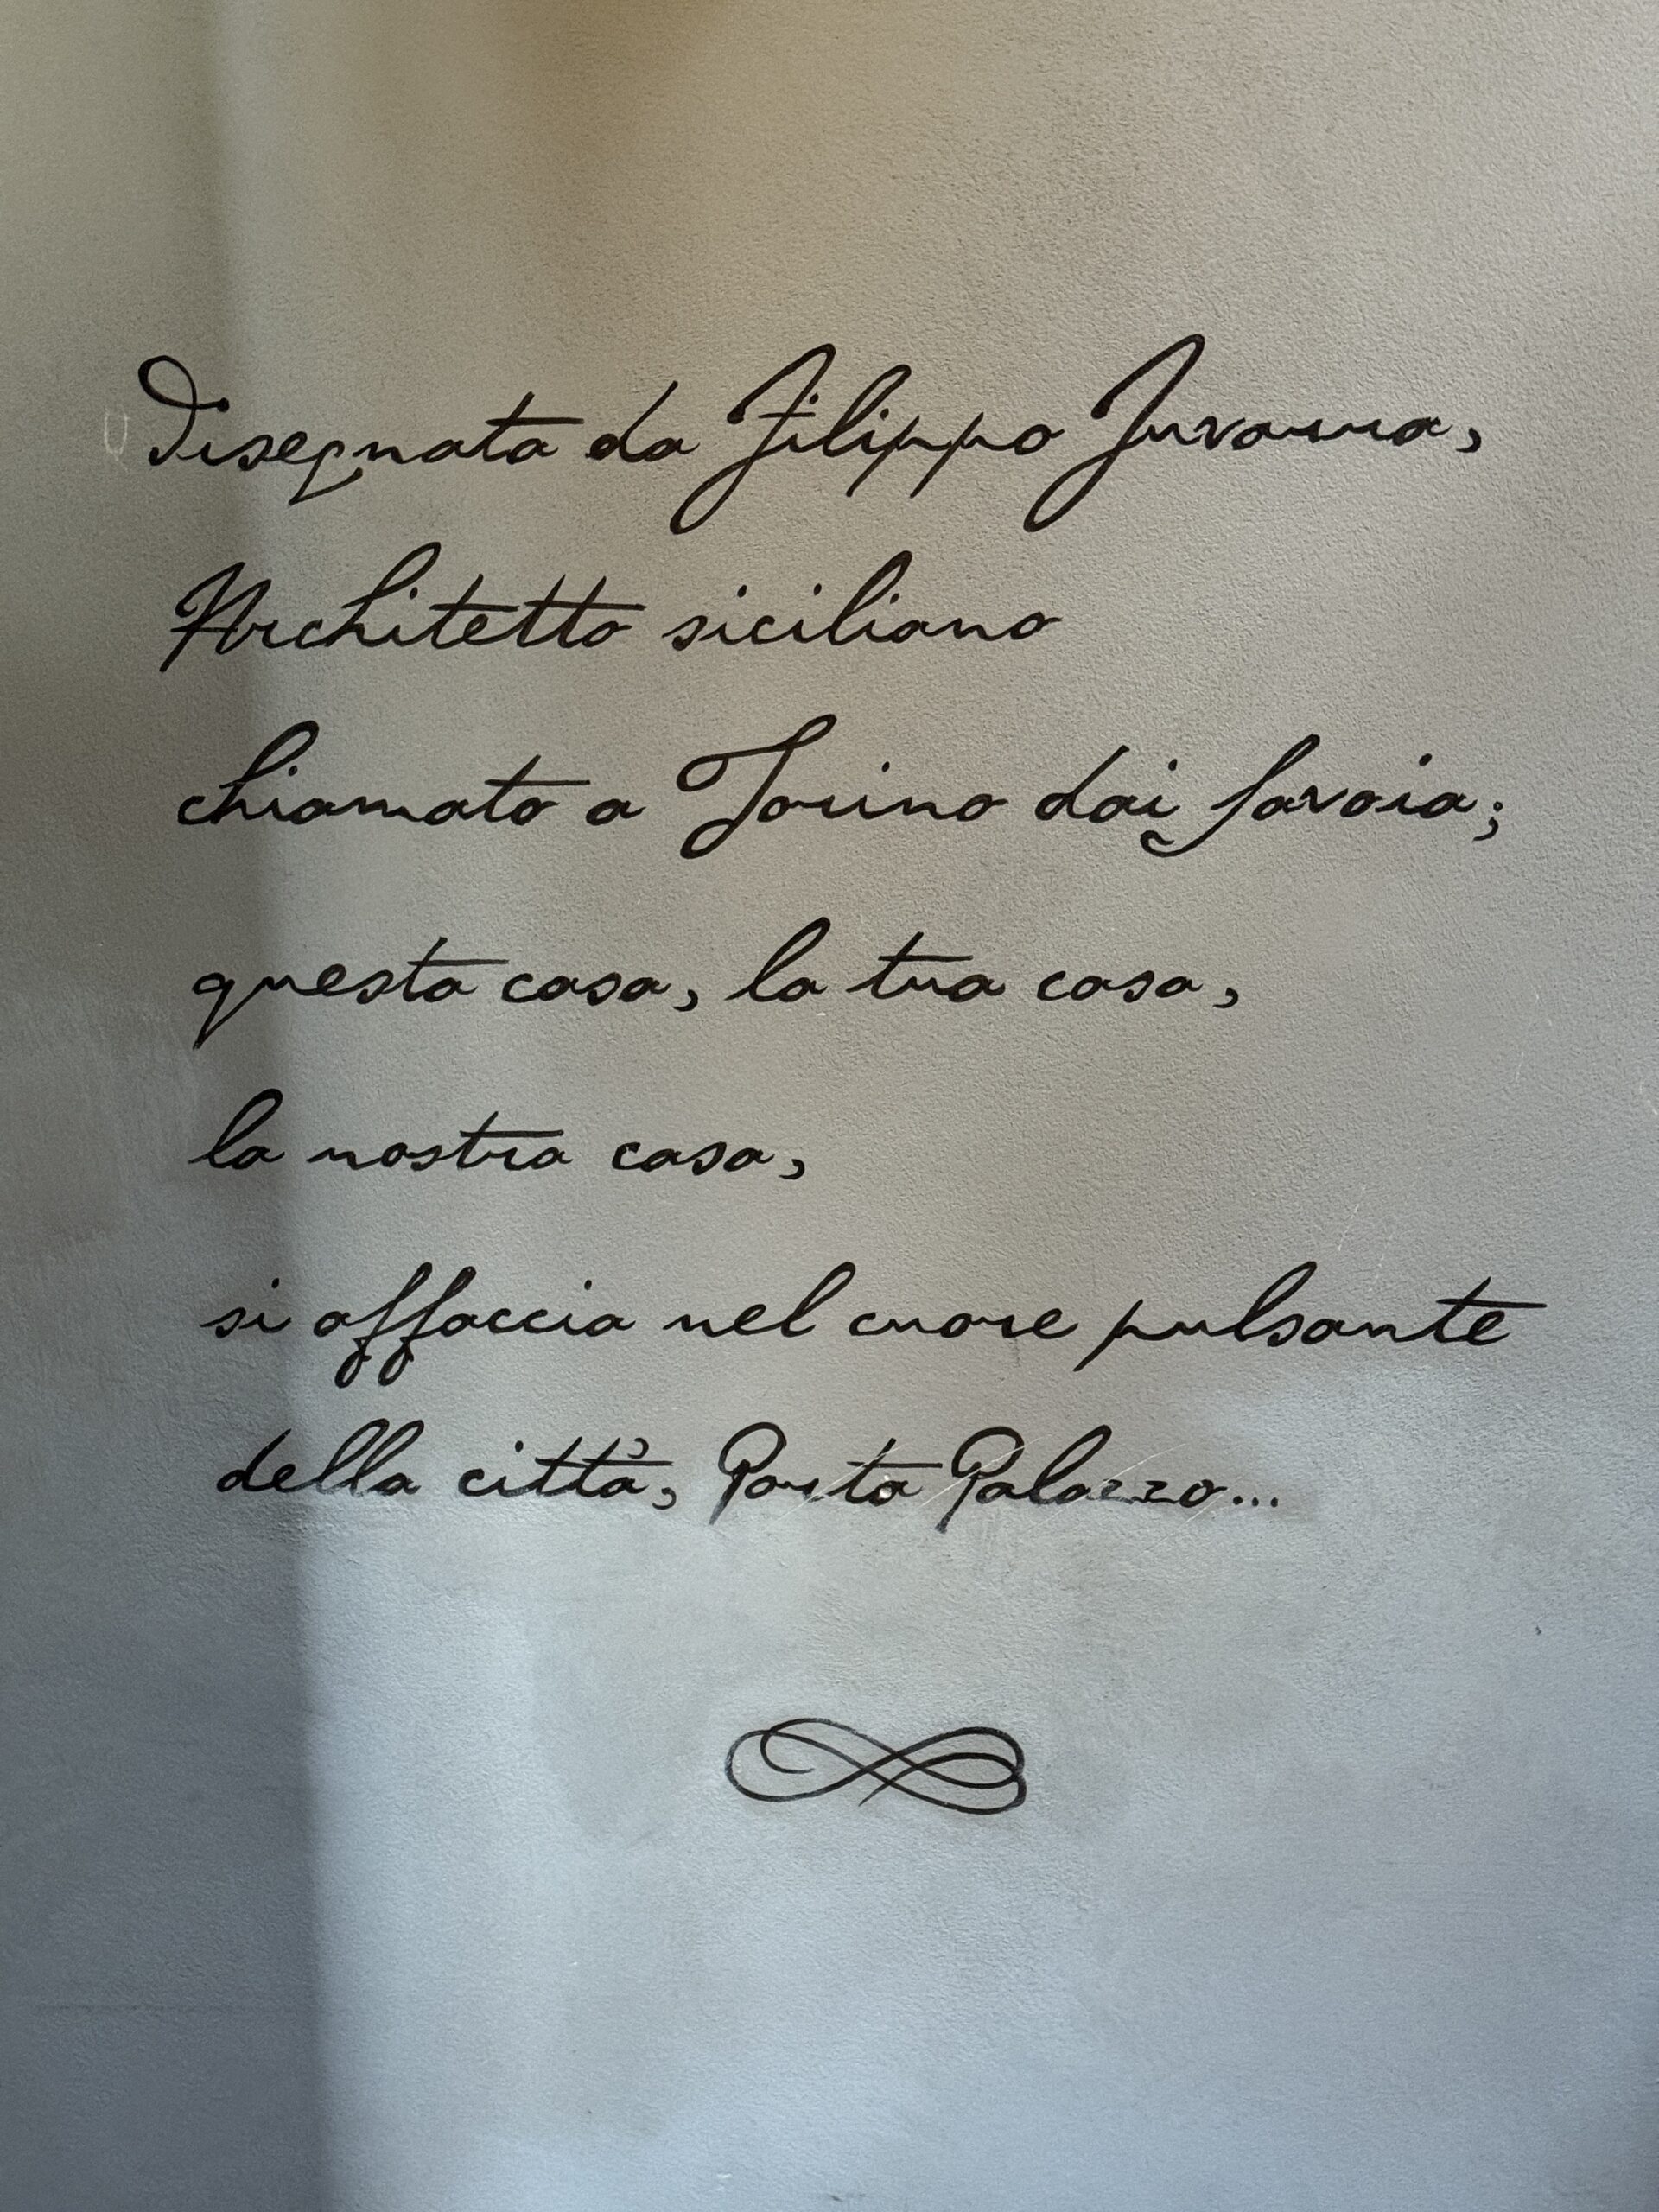 Disegnata da Filippo Juvarra,
Architetto siciliano
chiamato a Torino dai Savoia;
questa casa, la tua casa,
la nostra casa,
si affaccia nel cuore pulsante
della città, Porta Palazzo...